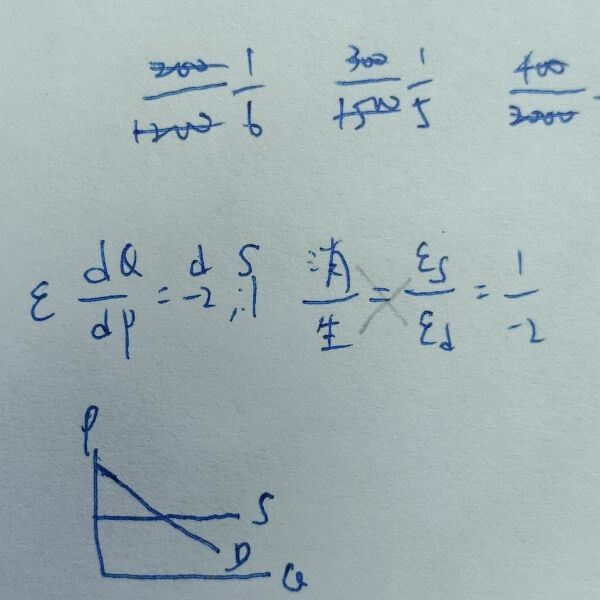 200/1200 1/6 300/1500 1/5 400/2000
ε dQ/dp = d -2, S 1 消/生 = εs/εd = 1/-2
P
S
D
Q